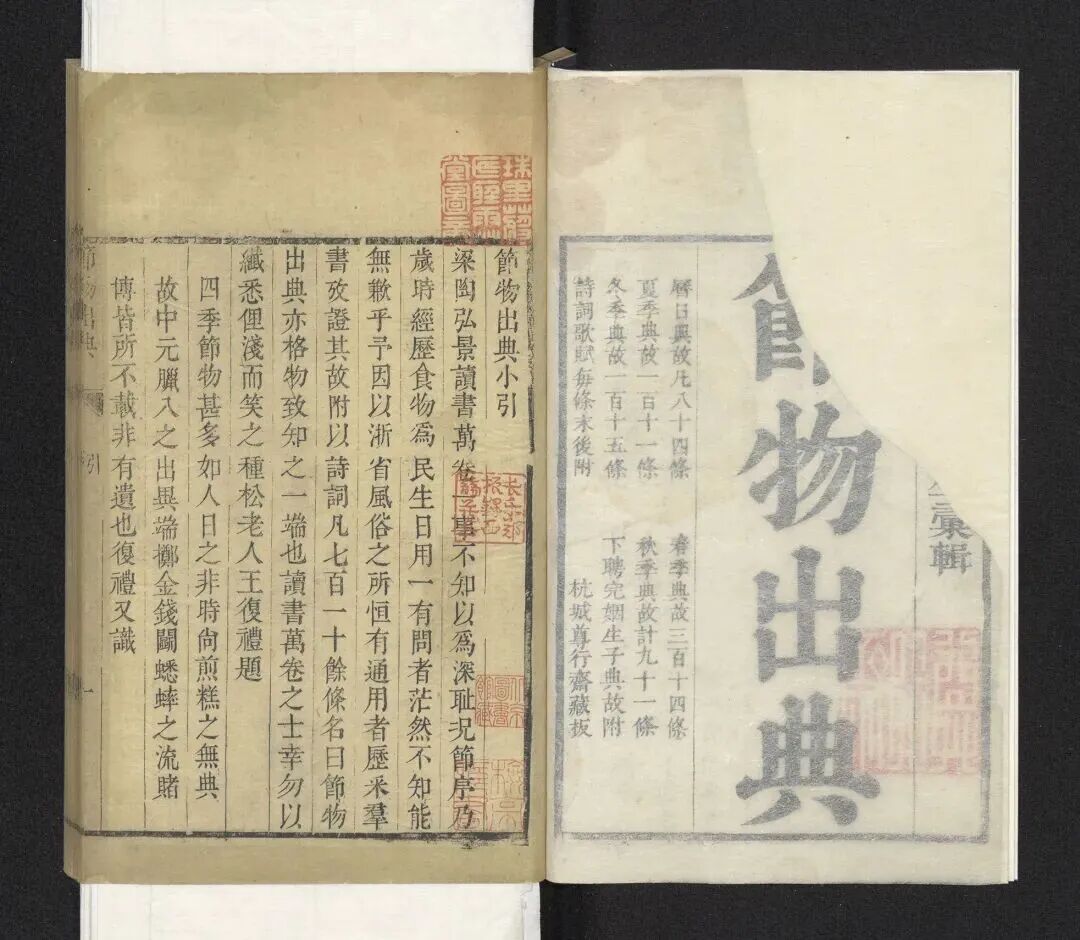 彙輯
節物出典
曆日典故凡八十四條 春季典故三百十四條
夏季典故一百十一條 秋季典故計九十一條
冬季典故一百十五條 下聘完姻生子典故附
詩詞歌賦每條末後附 杭城尊行齋藏板
節物出典小引
梁陶弘景讀書萬卷一事不知以爲深耻况節序乃
歲時經歷食物爲民生日用一有問者茫然不知能
無歉乎予因以浙省風俗之所恒有通用者歷采羣
書攷證其故附以詩詞凡七百一十餘條名曰節物
出典亦格物致知之一端也讀書萬卷之士幸勿以
纖悉俚淺而笑之種松老人王復禮題
四季節物甚多如人日之非時尙煎糕之無典
故中元臘八之出異端擲金錢鬭蟋蟀之流賭
博皆所不載非有遺也復禮又識
節物出典
引
一